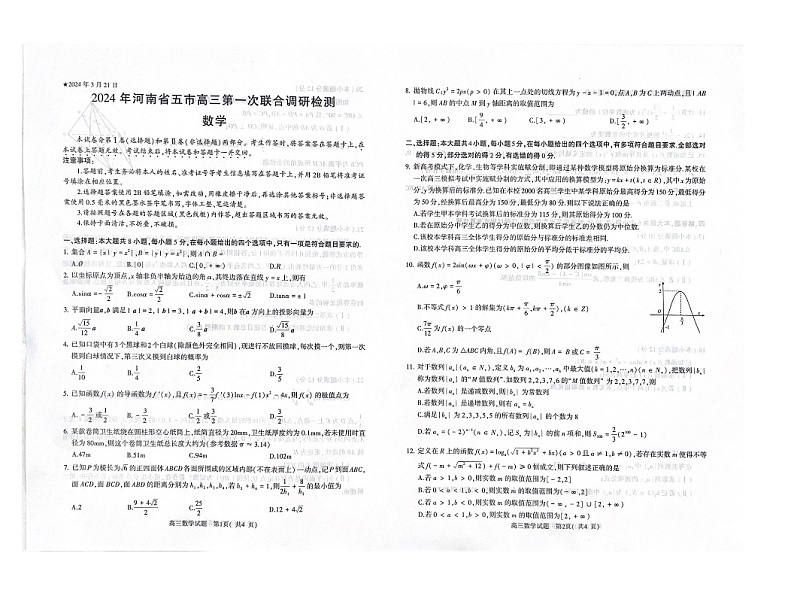 ★2024 年 3 月 21 日
2024 年河南省五市高三第一次联合调研检测
数学
本试卷分第Ⅰ卷(选择题)和第Ⅱ卷(非选择题)两部分。考生作答时,将答案答在答题卡上,在
本试卷上答题无效。考试结束后,将本试卷和答题卡一并交回。
注意事项:
1.答题前,考生务必将本人的姓名、准考证号等考生信息填写在答题卡上,并用2B铅笔将准考证
号填涂在相应位置。
2.选择题答案使用2B铅笔填涂,如需改动,用橡皮擦干净后,再选涂其他答案标号;非选择题答
案使用0.5毫米的黑色墨水签字笔书写,字体工整,笔迹清楚。
3.请按照题号在各题的答题区域(黑色线框)内作答,超出答题区域书写的答案无效。
4.保持卡面清洁,不折叠,不破损。
一、选择题:本大题共8小题,每小题5分,在每小题给出的四个选项中,只有一项是符合题目要求的.
1. 集合A={x|y=x²},B={y|y=x²},则A∩B=
A.∅ B.{0} C.[0,+∞) D.R
2. 以坐标原点为顶点,x轴非负半轴为始边的角α,其终边落在直线y=x上,则有
A.sinα=-√2/2 B.cosα=√2/2 C.sinα+cosα=±√2 D.tanα=±1
3. 平面向量a,b满足|a|=2,|b|=3,|a+b|=4,则b在a方向上的投影向量为
A.√15/12 a B.1/4 a C.3/8 a D.√15/8 a
4. 已知口袋中有3个黑球和2个白球(除颜色外完全相同),现进行不放回摸球,每次摸一个,则第一次
摸到白球情况下,第三次又摸到白球的概率为
A.1/10 B.1/4 C.2/5 D.3/5
5. 已知函数f(x)的导函数为f′(x),且f(x)=-3/2 f′(3)lnx-f(1)x²-4x,则f(x)的极值点为
A.-3/2或1 B.-3/2 C.1/2或3/2 D.3/2
6. 某款卷筒卫生纸绕在圆柱形空心纸筒上,纸筒直径为20mm,卫生纸厚度约为0.1mm,若未使用时直
径为80mm,则这个卷筒卫生纸总长度大约为(参考数据π≈3.14)
A.47m B.51m C.94m D.102m
7. 已知P为棱长为√6的正四面体ABCD各面所围成的区域内部(不在表面上)一动点,记P到面ABC,
面ACD,面BCD,面ABD的距离分别为h₁,h₂,h₃,h₄,若h₃+h₄=1,则1/2h₁+8/h₂的最小值为
A.2 B.(9+4√2)/2 C.25/2 D.12+4√2
高三数学试题 第1页( 共4 页)
8. 抛物线C:y²=2px(p>0)在其上一点处的切线方程为y-x-1=0,点A,B为C上两动点,且|AB
|=6,则AB的中点M到y轴距离的取值范围为
A.[2,+∞) B.[9/4,+∞) C.[3,+∞) D.[2,+∞)
二、选择题:本大题共4小题,每小题5分,在每小题给出的四个选项中,有多项符合题目要求.全部选对
的得5分,部分选对的得2分,有选错的得0分.
9. 新高考模式下,化学、生物等学科实施赋分制,即通过某种数学模型将原始分换算为标准分.某校在
一次高三模拟考试中实施赋分制的方式,其中应用的换算模型为:y=kx+t(k,t∈R),其中x为原始
分,y为换算后的标准分.已知在本校2000名高三学生中某学科原始分最高得分为150分,最低得分
为50分,经换算后最高分为150分,最低分为80分.则以下说法正确的是
A.若学生甲本学科考试换算后的标准分为115分,则其原始得分为100分
B.若在原始分中学生乙的得分为中位数,则换算后学生乙的分数仍为中位数.
C.该校本学科高三全体学生得分的原始分与标准分的标准差相同.
D.该校本学科高三学生得分的原始分的平均分低于标准分的平均分.
10. 函数f(x)=2sin(ωx+φ)(ω>0,|φ|<π/2)的部分图像如图所示,则
A.ω=2,φ=π/6
B.不等式f(x)>1的解集为(kπ+π/6,kπ+π/2),(k∈Z)
C.7π/12为f(x)的一个零点
D.若A,B,C为△ABC内角,且f(A)=f(B),则A=B或C=π/3
11. 对于数列{aₙ}(aₙ∈N₊),定义bₖ为a₁,a₂,…,aₖ中最大值(k=1,2,…,n)(n∈N₊),把数列{bₙ}
称为数列{aₙ}的"M值数列".如数列2,2,3,7,6的"M值数列"为2,2,3,7,7,则
A.若数列{aₙ}是递减数列,则{bₙ}为常数列
B.若数列{aₙ}是递增数列,则有aₙ=bₙ
C.满足{bₙ}为2,3,3,5,5的所有数列{aₙ}的个数为8
D.若aₙ=(-2)ⁿ⁻¹(n∈N₊),记Sₙ为{bₙ}的前n项和,则S₁₀₀=2/3(2¹⁰⁰-1)
12. 定义在R上的函数f(x)=logₐ(√(1+b²x²)+bx)(a>0且a≠1,b≠0),若存在实数m使得不等
式f(-m+√(m²+12))+f(-m)≥0恒成立,则下列叙述正确的是
A.若a>1,b>0,则实数m的取值范围为[-2,2]
B.若0<a<1,b<0,则实数m的取值范围为(-∞,2]
C.若a>1,b<0,则实数m的取值范围为(-∞,-2]∪[2,+∞)
D.若0<a<1,b>0,则实数m的取值范围为[2,+∞)
高三数学试题 第2页( 共4 页)